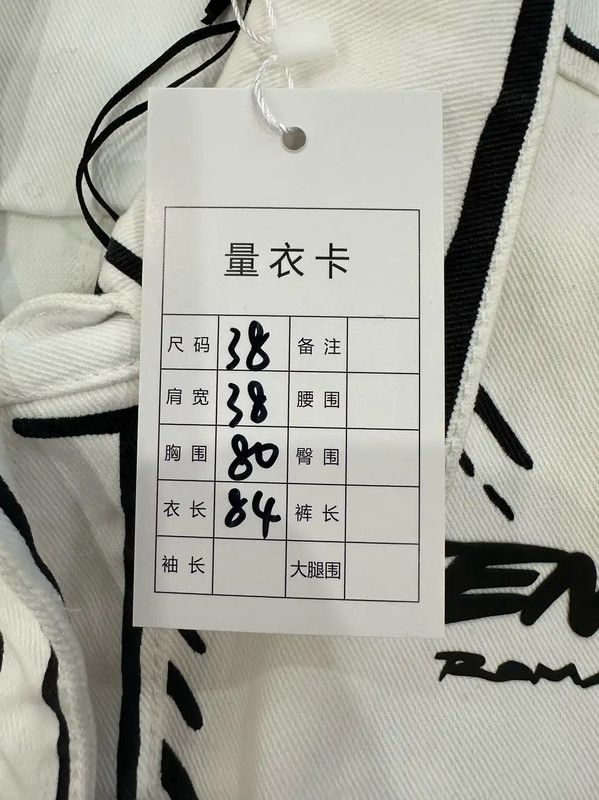 量衣卡
尺码 38 备注
肩宽 38 腰围
胸围 80 臀围
衣长 84 裤长
袖长 大腿围